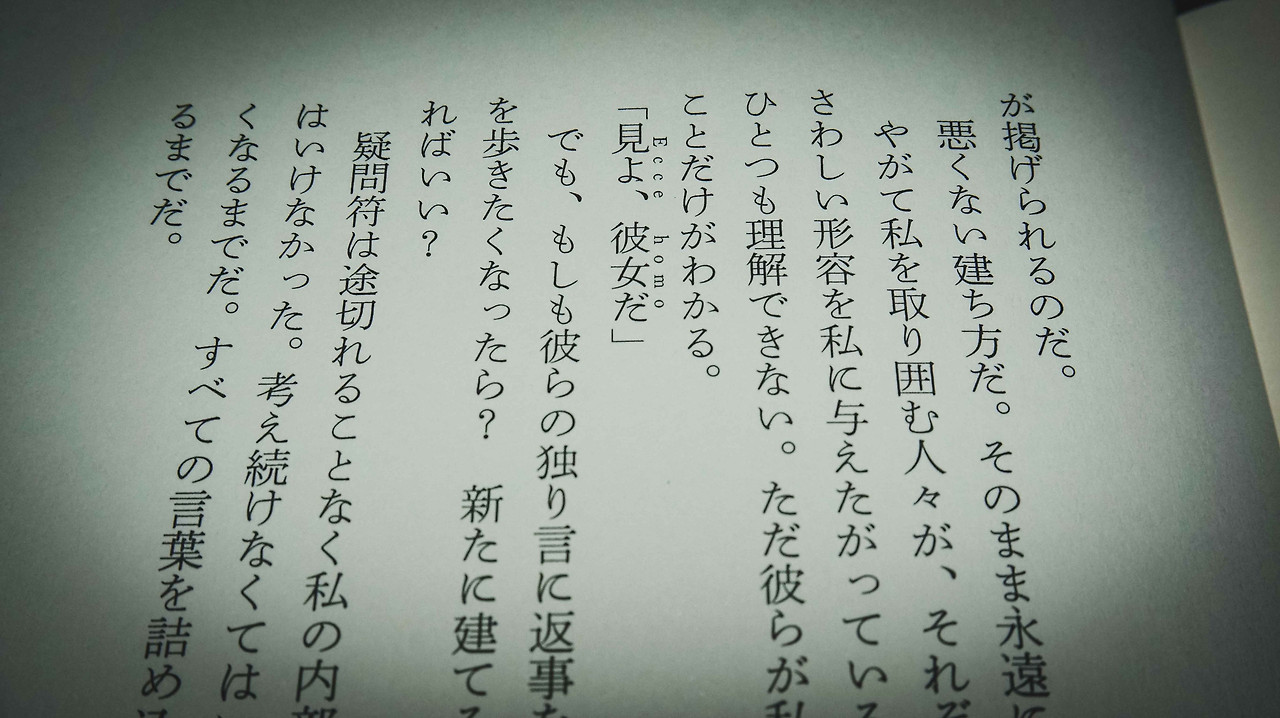 が掲げられるのだ。
悪くない建ち方だ。そのまま永遠に
やがて私を取り囲む人々が、それぞ
さわしい形容を私に与えたがっている
ひとつも理解できない。ただ彼らが私
ことだけがわかる。
Ecce homo
「見よ、彼女だ」
でも、もしも彼らの独り言に返事を
を歩きたくなったら？　新たに建てる
ればいい？
疑問符は途切れることなく私の内部
はいけなかった。考え続けなくては
くなるまでだ。すべての言葉を詰め
るまでだ。